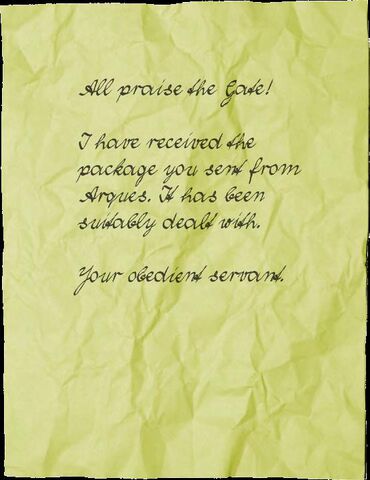 All praise the Gate!
I have received the
package you sent from
Arques. It has been
suitably dealt with.
Your obedient servant.